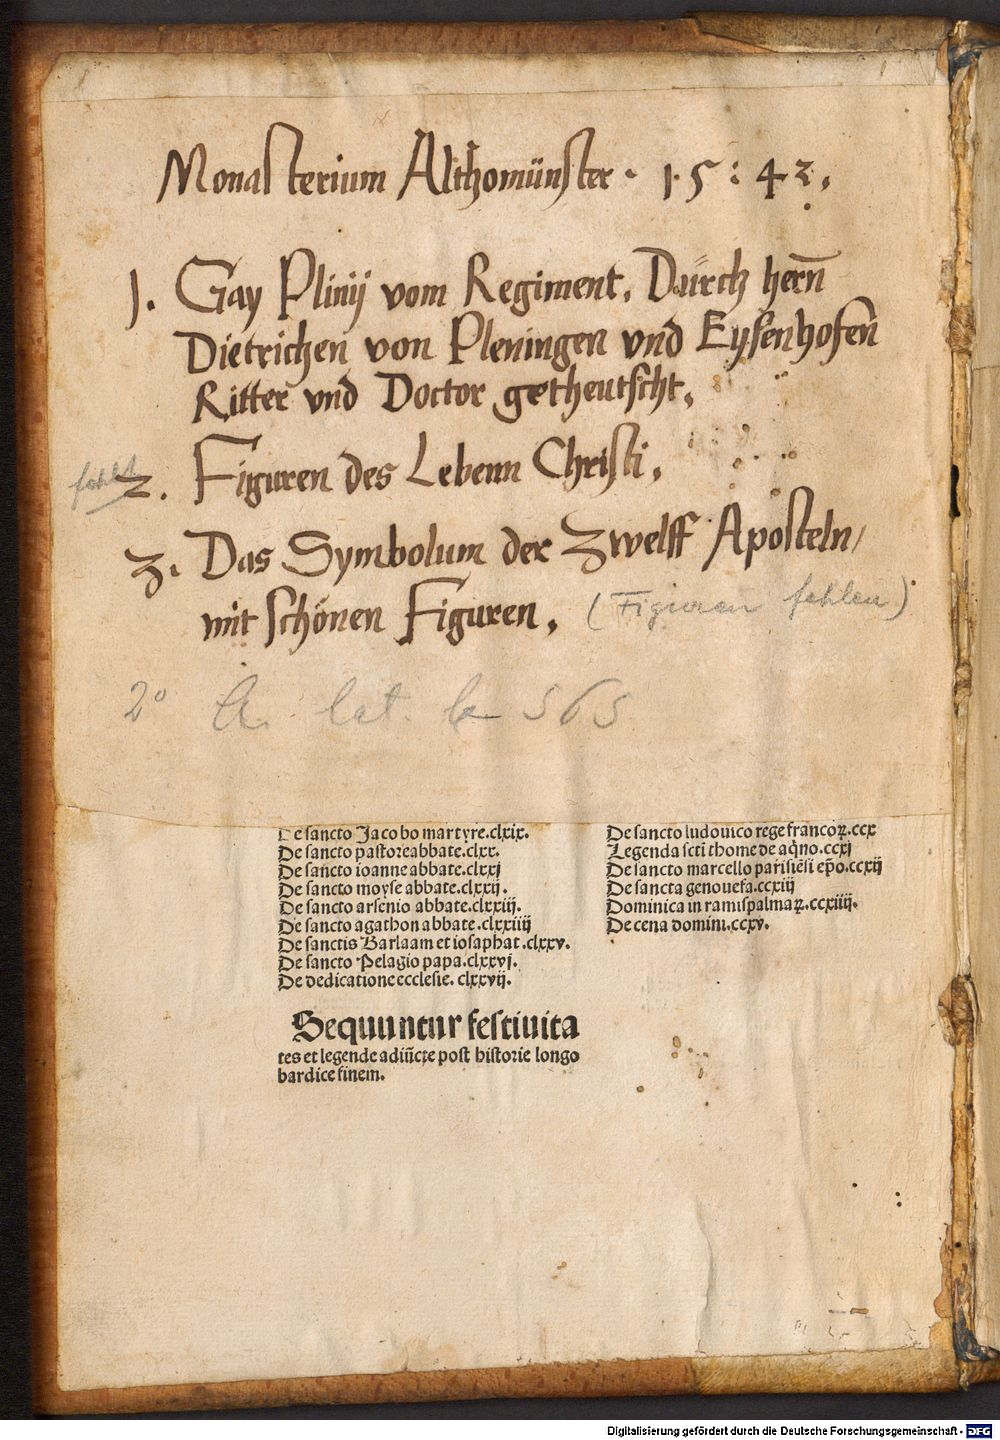 Monasterium Althomünster. 15:43.
1. Gay Plinij vom Regiment. Durch hern̄
Dietrichen von Pleningen vnd Eysenhofen̄
Ritter vnd Doctor getheutscht.
fehlt
2. Figuren des Lebenn Christi.
3. Das Symbolum der Zwelff Aposteln/
mit schönen Figuren. (Figuren fehlen)
2° A. lat. b 565
De sancto Jacobo martyre.clxix.
De sancto pastore abbate.clxx.
De sancto ioanne abbate.clxxj
De sancto moyse abbate.clxxij.
De sancto arsenio abbate.clxxiij.
De sancto agathon abbate.clxxiiij
De sanctis Barlaam et iosaphat.clxxv.
De sancto Pelagio papa.clxxvj.
De dedicatione ecclesie.clxxvij.
Sequuntur festiuita
tes et legende adiūcte post historie longo
bardice finem.
De sancto ludouico rege francoꝝ.ccx
Legenda scti thome de aq̄no.ccxj
De sancto marcello parisiēsi ep̄o.ccxij
De sancta genouefa.ccxiij
Dominica in ramispalmaꝝ.ccxiiij.
De cena domini.ccxv.
Digitalisierung gefördert durch die Deutsche Forschungsgemeinschaft - DFG